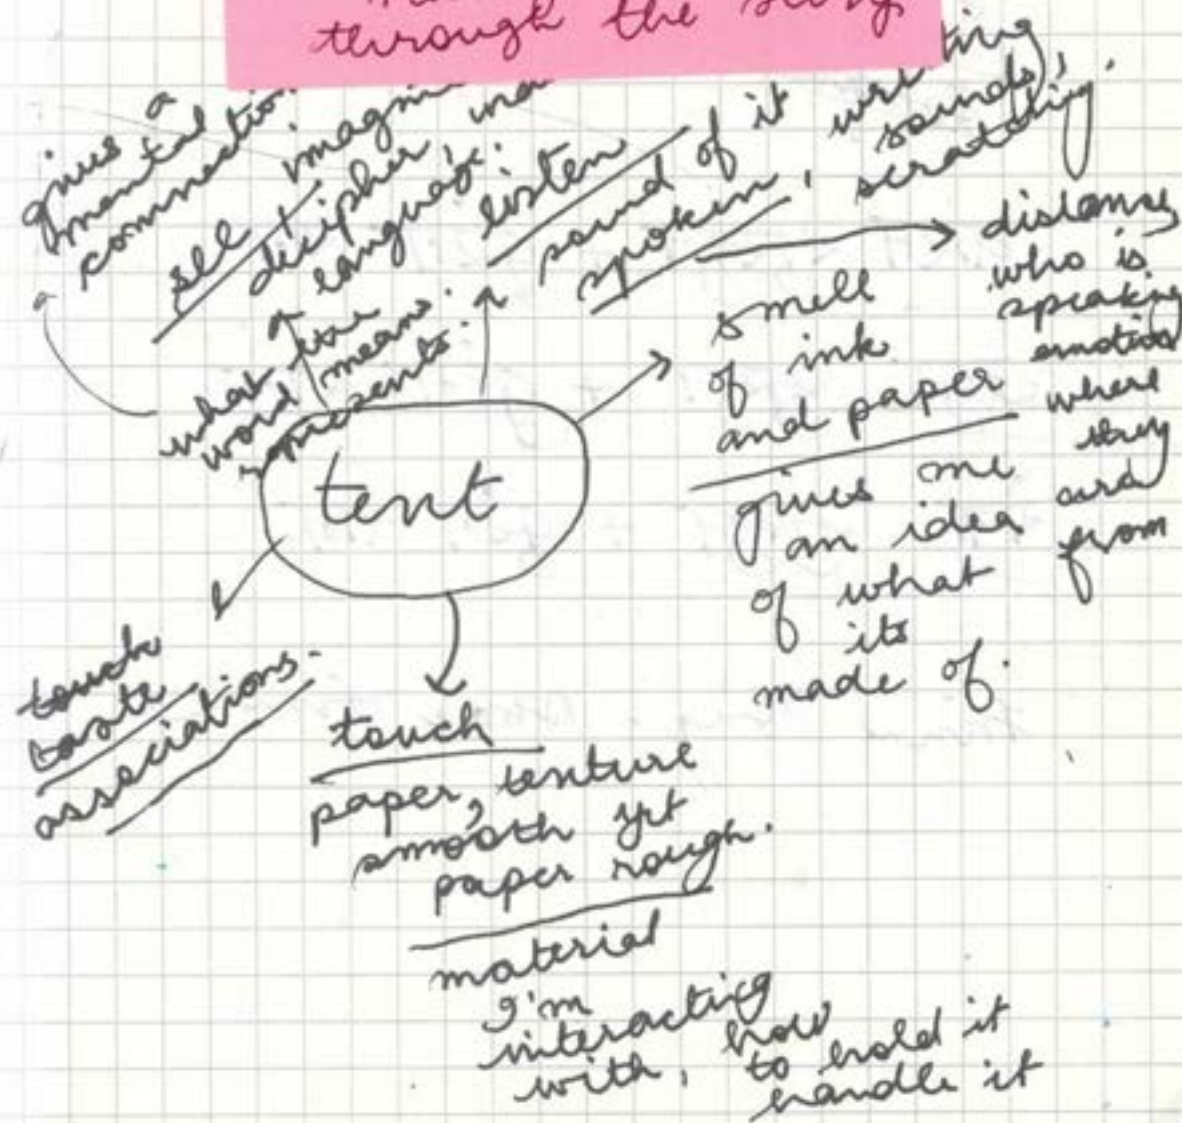 through the story
gives a
mental
connection.
see imagin
decipher,
language.
what the
word means
represents.
listen
sound of it
spoken, writing
sounds,
scratching.
distance,
who is
speaking
emotion
where
they
are
from
smell
of ink
and paper
gives me
an idea
of what
its
made of.
tent
touch
taste
associations.
touch
paper, texture
smooth yet
paper rough.
material
I'm
interacting
with, how
to hold it
handle it